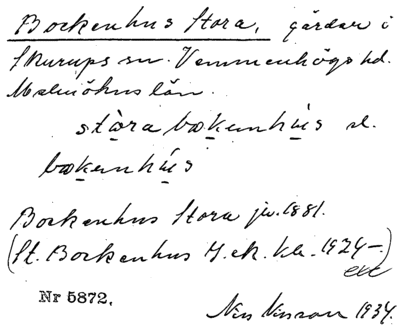 Bockenhus Stora, gårdar i
Skurups sn. Vemmenhögs hd.
Malmöhus län.
stòra bokenhús el.
bokenhús
Bockenhus Stora jr. 1881.
(St. Bockenhus G. ek. kbl. 1924-.)
Nr 5872.
Nils Nilsson 1934.